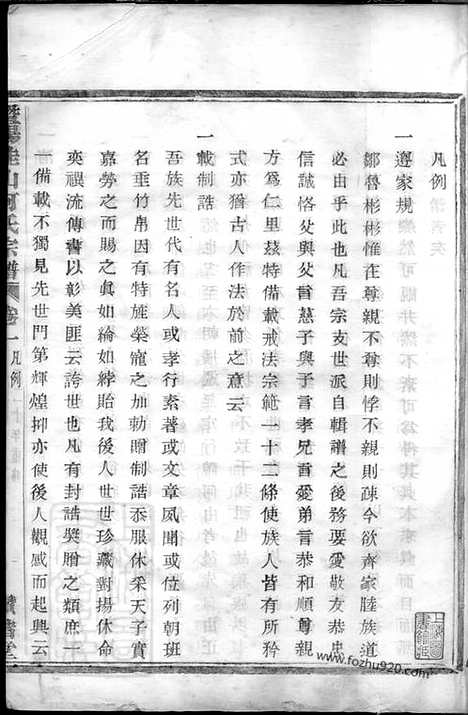 凡例
一遵家規
鄒魯彬彬惟在尊親不尊則悖不親則疎今欲齊家睦族道
必由乎此也凡吾宗支世派自輯譜之後務要愛敬友恭忠
信誠恪父與父言慈子與子言孝兄言愛弟言恭和順尊親
方爲仁里茲特備載戒法宗範一十二條使族人皆有所矜
式亦猶古人作法於前之意云
一載制誥
吾族先世代有名人或孝行素著或文章夙聞或位列朝班
名垂竹帛因有特旌榮寵之加勅贈制誥忝服休采天子實
嘉勞之而賜之眞如綸如綍貽我後人世世珍藏對揚休命
奕禩流傳書以彰美匪云誇世也凡有封誥奬贈之類庶一
一備載不獨見先世門第輝煌抑亦使後人觀感而起興云
暨陽 山何氏宗譜
卷一凡例
書堂
www.fozhu920.com